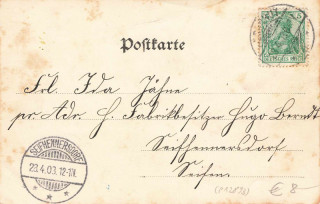 Postkarte
Frl. Ida Jähne
pr. Adr. H. Fabrikbesitzer Hugo Berndt
Seifhennersdorf
SEIFHENNERSDORF
23.4.03. 12-1N.
€ 8